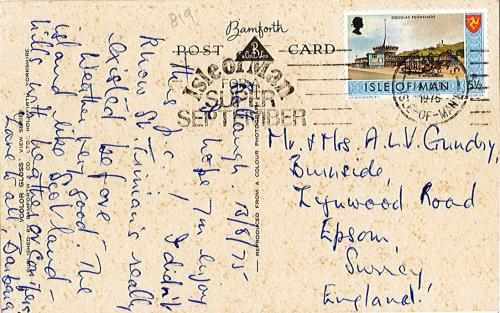 819
Bamforth
POST CARD
DOUGLAS PROMENADE
ISLE OF MAN
5½
1975
ISLE-OF-MAN
Isle of Man
FOR A
SUPER
SEPTEMBER
13/8/75
hope you enjoy
this p.c., I didn't
know St. Trinian's really
existed before.
Weather very good. The
island like Scotland -
hills with heather on
Love to all, Barbara.
REPRODUCED FROM A COLOUR PHOTOGRAPH
Mr. & Mrs. A.L.V. Gundry,
Burnside,
Lynwood Road
Epsom,
Surrey
England!